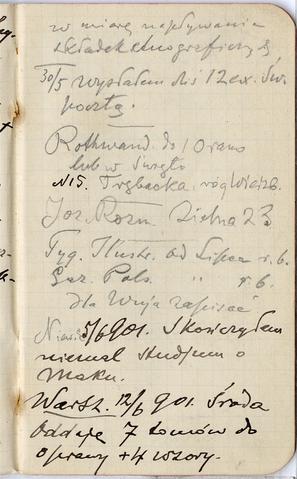 w miarę napływania
składek etnograficznych
30/5 wysłałem dziś 12 ex. Św.
pocztą.
Rothwand. do 1 Orano
lub w święto
N 15. Trębacka, róg Wierzb.
Joz. Rozn. Zielna 23
Tyg. Ilustr. od Lipca r. b.
Gaz. Pols. " r. b.
dla Wuja zapisać
5/6 901. Skończyłem
niemal studjum o
Maku.
Warsz. 12/6 901. Środa
Oddaję 7 tomów do
oprawy + 4 wzory.